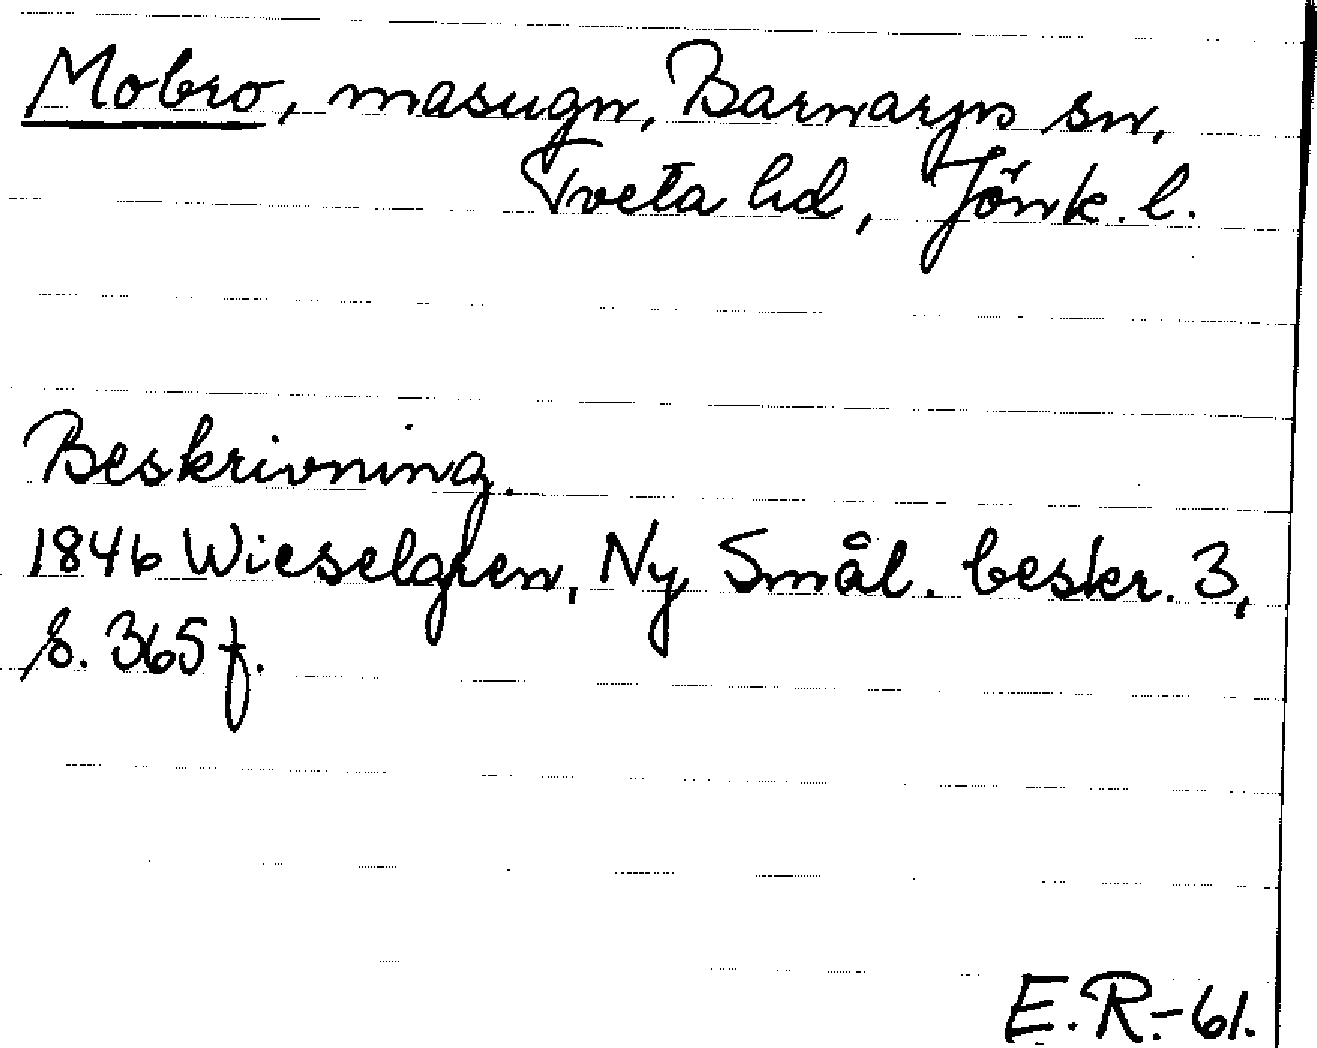 Mobro, masugn, Barnaryds sn,
Tveta hd, Jönk. l.
Beskrivning.
1846 Wieselgren, Ny Smål. beskr. 3,
s. 365 f.
E.R.-61.